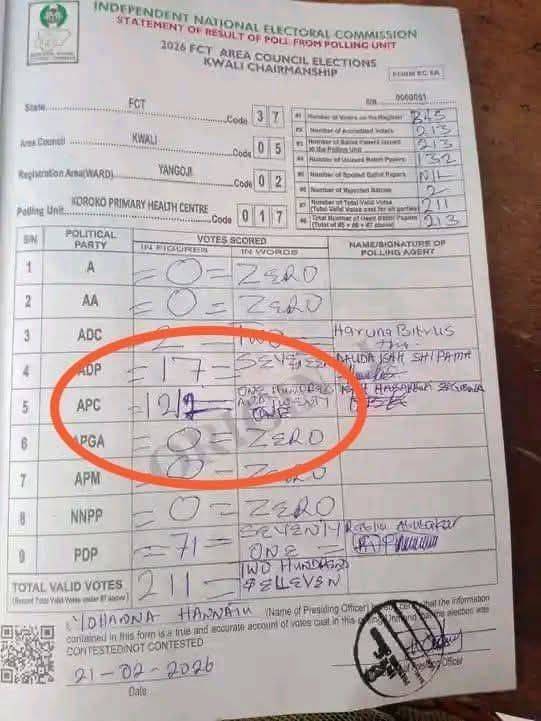 INDEPENDENT NATIONAL ELECTORAL COMMISSION
STATEMENT OF RESULT OF POLL FROM POLLING UNIT
2026 FCT AREA COUNCIL ELECTIONS
KWALI CHAIRMANSHIP
FORM EC 8A
S/N 0000051
State FCT Code 3 7
Area Council KWALI Code 0 5
Registration Area(WARD) YANGOJI Code 0 2
Polling Unit KOROKO PRIMARY HEALTH CENTRE Code 0 1 7
#1 Number of Voters on the Register 345
#2 Number of Accredited Voters 213
#3 Number of Ballot Papers Issued to the Polling Unit 213
#4 Number of Unused Ballot Papers 132
#5 Number of Spoiled Ballot Papers NIL
#6 Number of Rejected Ballots 2
#7 Number of Total Valid Votes (Total Valid Votes cast for all parties) 211
#8 Total Number of Used Ballot Papers (Total of #5 + #6 + #7 above) 213
S/N POLITICAL PARTY VOTES SCORED NAME/SIGNATURE OF POLLING AGENT
IN FIGURES IN WORDS
1 A =0= ZERO
2 AA =0= ZERO
3 ADC 2 TWO Haruna Bitrus
4 ADP =17= SEVENTEEN DAUDA ISAH SHIPAMA
5 APC =121 ONE HUNDRED AND TWENTY ONE
6 APGA =0= ZERO
7 APM 0 ZERO
8 NNPP =0= ZERO
9 PDP =71= SEVENTY ONE
TOTAL VALID VOTES 211 TWO HUNDRED & ELLEVEN
(Record Total Valid Votes under #7 above)
I, YOHANNA HANNATU (Name of Presiding Officer) that the information
contained in this form is a true and accurate account of votes cast in this and the election was
CONTESTED/NOT CONTESTED
21-02-2026
Date
of Presiding Officer